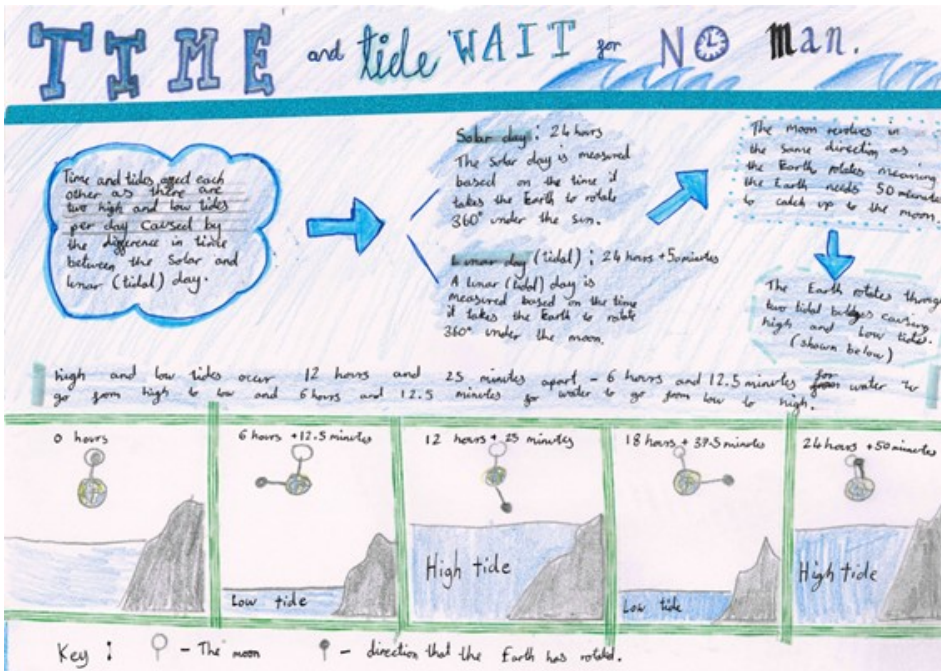 TIME and tide WAIT for NO Man.
Time and tides aged each
other as there are
two high and low tides
per day caused by
the difference in time
between the Solar and
lunar (tidal) day.
Solar day: 24 hours
The solar day is measured
based on the time it
takes the Earth to rotate
360° under the sun.
Lunar day (tidal): 24 hours +50minutes
A lunar (tidal) day is
measured based on the time
it takes the Earth to rotate
360° under the moon.
The moon revolves in
the same direction as
the Earth rotates meaning
the Earth needs 50 minutes
to catch up to the moon.
The Earth rotates through
two tidal bulges causing
high and low tides.
(shown below)
high and low tides occur 12 hours and 25 minutes apart - 6 hours and 12.5 minutes for water to
go from high to low and 6 hours and 12.5 minutes for water to go from low to high.
0 hours
6 hours +12.5 minutes
Low tide
12 hours + 25 minutes
High tide
18 hours + 37.5 minutes
Low tide
24 hours +50 minutes
High tide
Key: - The moon - direction that the Earth has rotated.